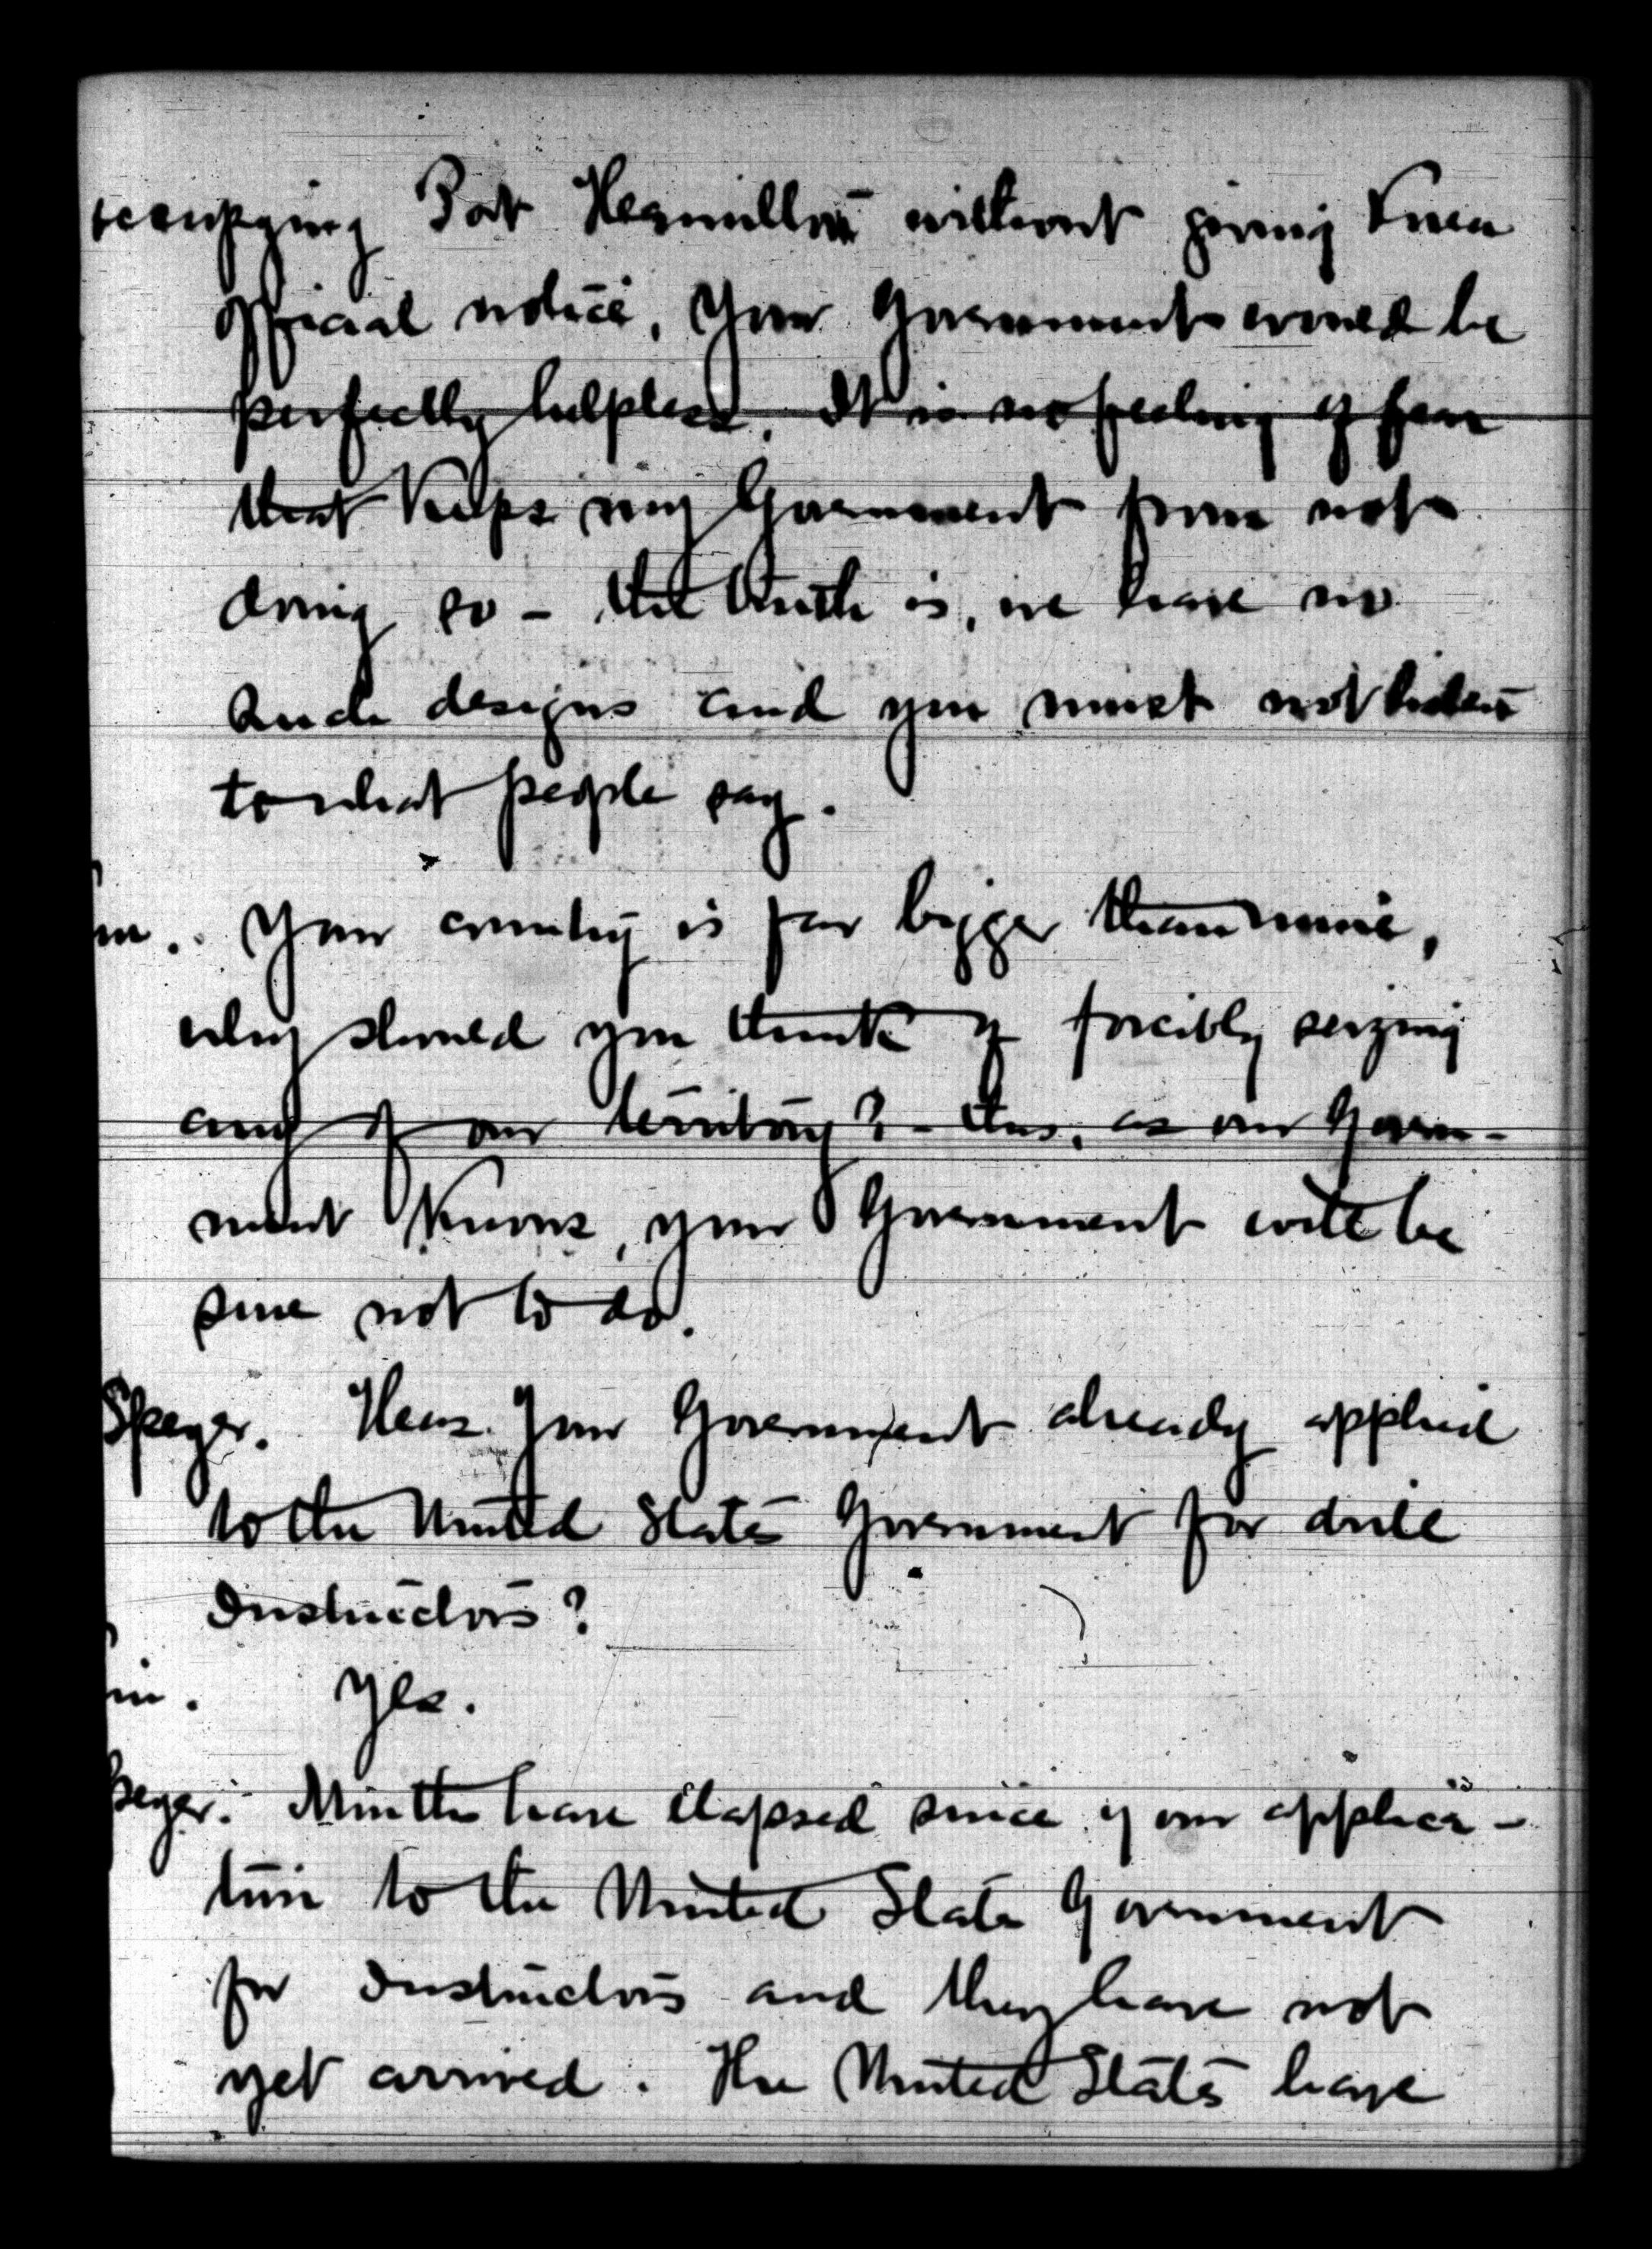 occupying Port Hamilton without giving Korea
official notice, Your Government would be
perfectly helpless. It is no feeling of fear
that keeps my Government from not
doing so – the truth is, we have no
such designs and you must not listen
to what people say.
m. Your country is far bigger than mine,
why should you think of forcibly seizing
any of our territory? – this, as our Govern-
ment knows, your Government will be
sure not to do.
Speyer. Has your Government already applied
to the United States Government for drill
Instructors?
in. Yes.
peyer. Months have elapsed since your applica-
tion to the United State Government
for Instructors and they have not
yet arrived. The United States have